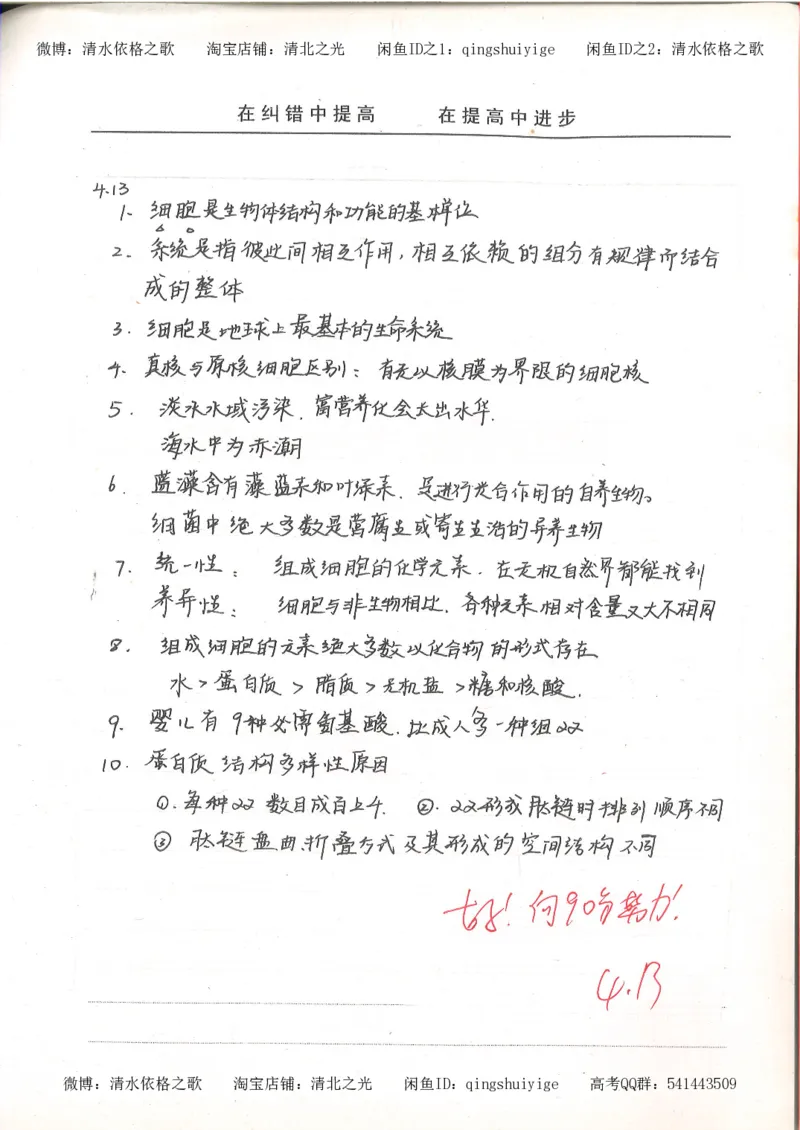 微博：清水依格之歌 淘宝店铺：清北之光 闲鱼ID之1：qingshuiyige 闲鱼ID之2：清水依格之歌
在纠错中提高 在提高中进步
4.13
1. 细胞是生物体结构和功能的基本单位
2. 系统是指彼此间相互作用，相互依赖的组分有规律而结合
成的整体
3. 细胞是地球上最基本的生命系统
4. 真核与原核细胞区别：有无以核膜为界限的细胞核
5. 淡水水域污染、富营养化会长出水华.
海水中为赤潮
6. 蓝藻含有藻蓝素和叶绿素、是进行光合作用的自养生物。
细菌中绝大多数是营腐生或寄生生活的异养生物
7. 统一性：组成细胞的化学元素．在无机自然界都能找到
差异性：细胞与非生物相比、各种元素相对含量又大不相同
8. 组成细胞的元素绝大多数以化合物的形式存在
水>蛋白质>脂质>无机盐>糖和核酸.
9. 婴儿有9种必需氨基酸、比成人多一种组aa
10. 蛋白质结构多样性原因
①.每种aa数目成百上千. ②.aa形成肽链时排列顺序不同
③ 肽链盘曲、折叠方式及其形成的空间结构不同
好！向90分努力！
4.13
微博：清水依格之歌 淘宝店铺：清北之光 闲鱼ID：qingshuiyige 高考QQ群：541443509